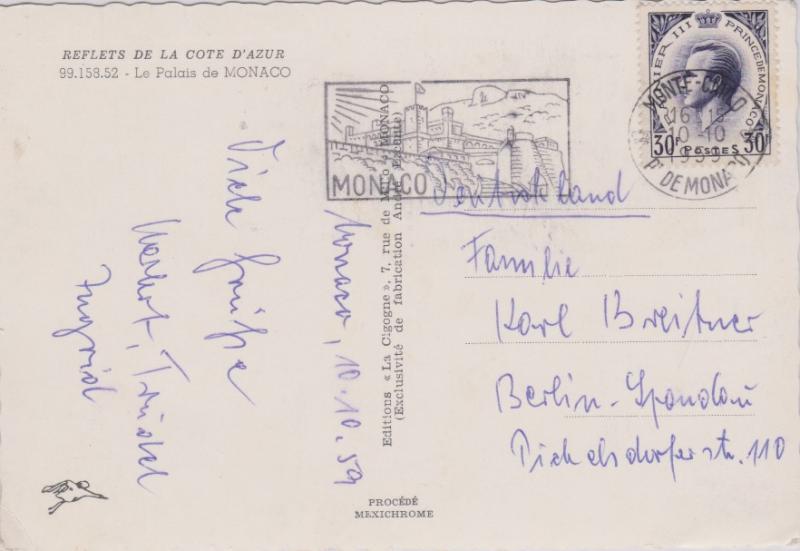 REFLETS DE LA COTE D'AZUR
99.158.52 - Le Palais de MONACO
Monaco, 10.10.59
Viele Grüße
Herbert, Trudel
Ingrid
Editions « La Cigogne », 7, rue de Millo - MONACO
(Exclusivité de fabrication André Leconte)
PROCÉDÉ
MEXICHROME
MONACO
RAINIER III PRINCE DE MONACO
30F POSTES 30F
MONTE-CARLO
16 H 15
10-10
1959
PTÉ DE MONACO
Deutschland
Familie
Karl Breitner
Berlin-Spandau
Pichelsdorferstr. 110